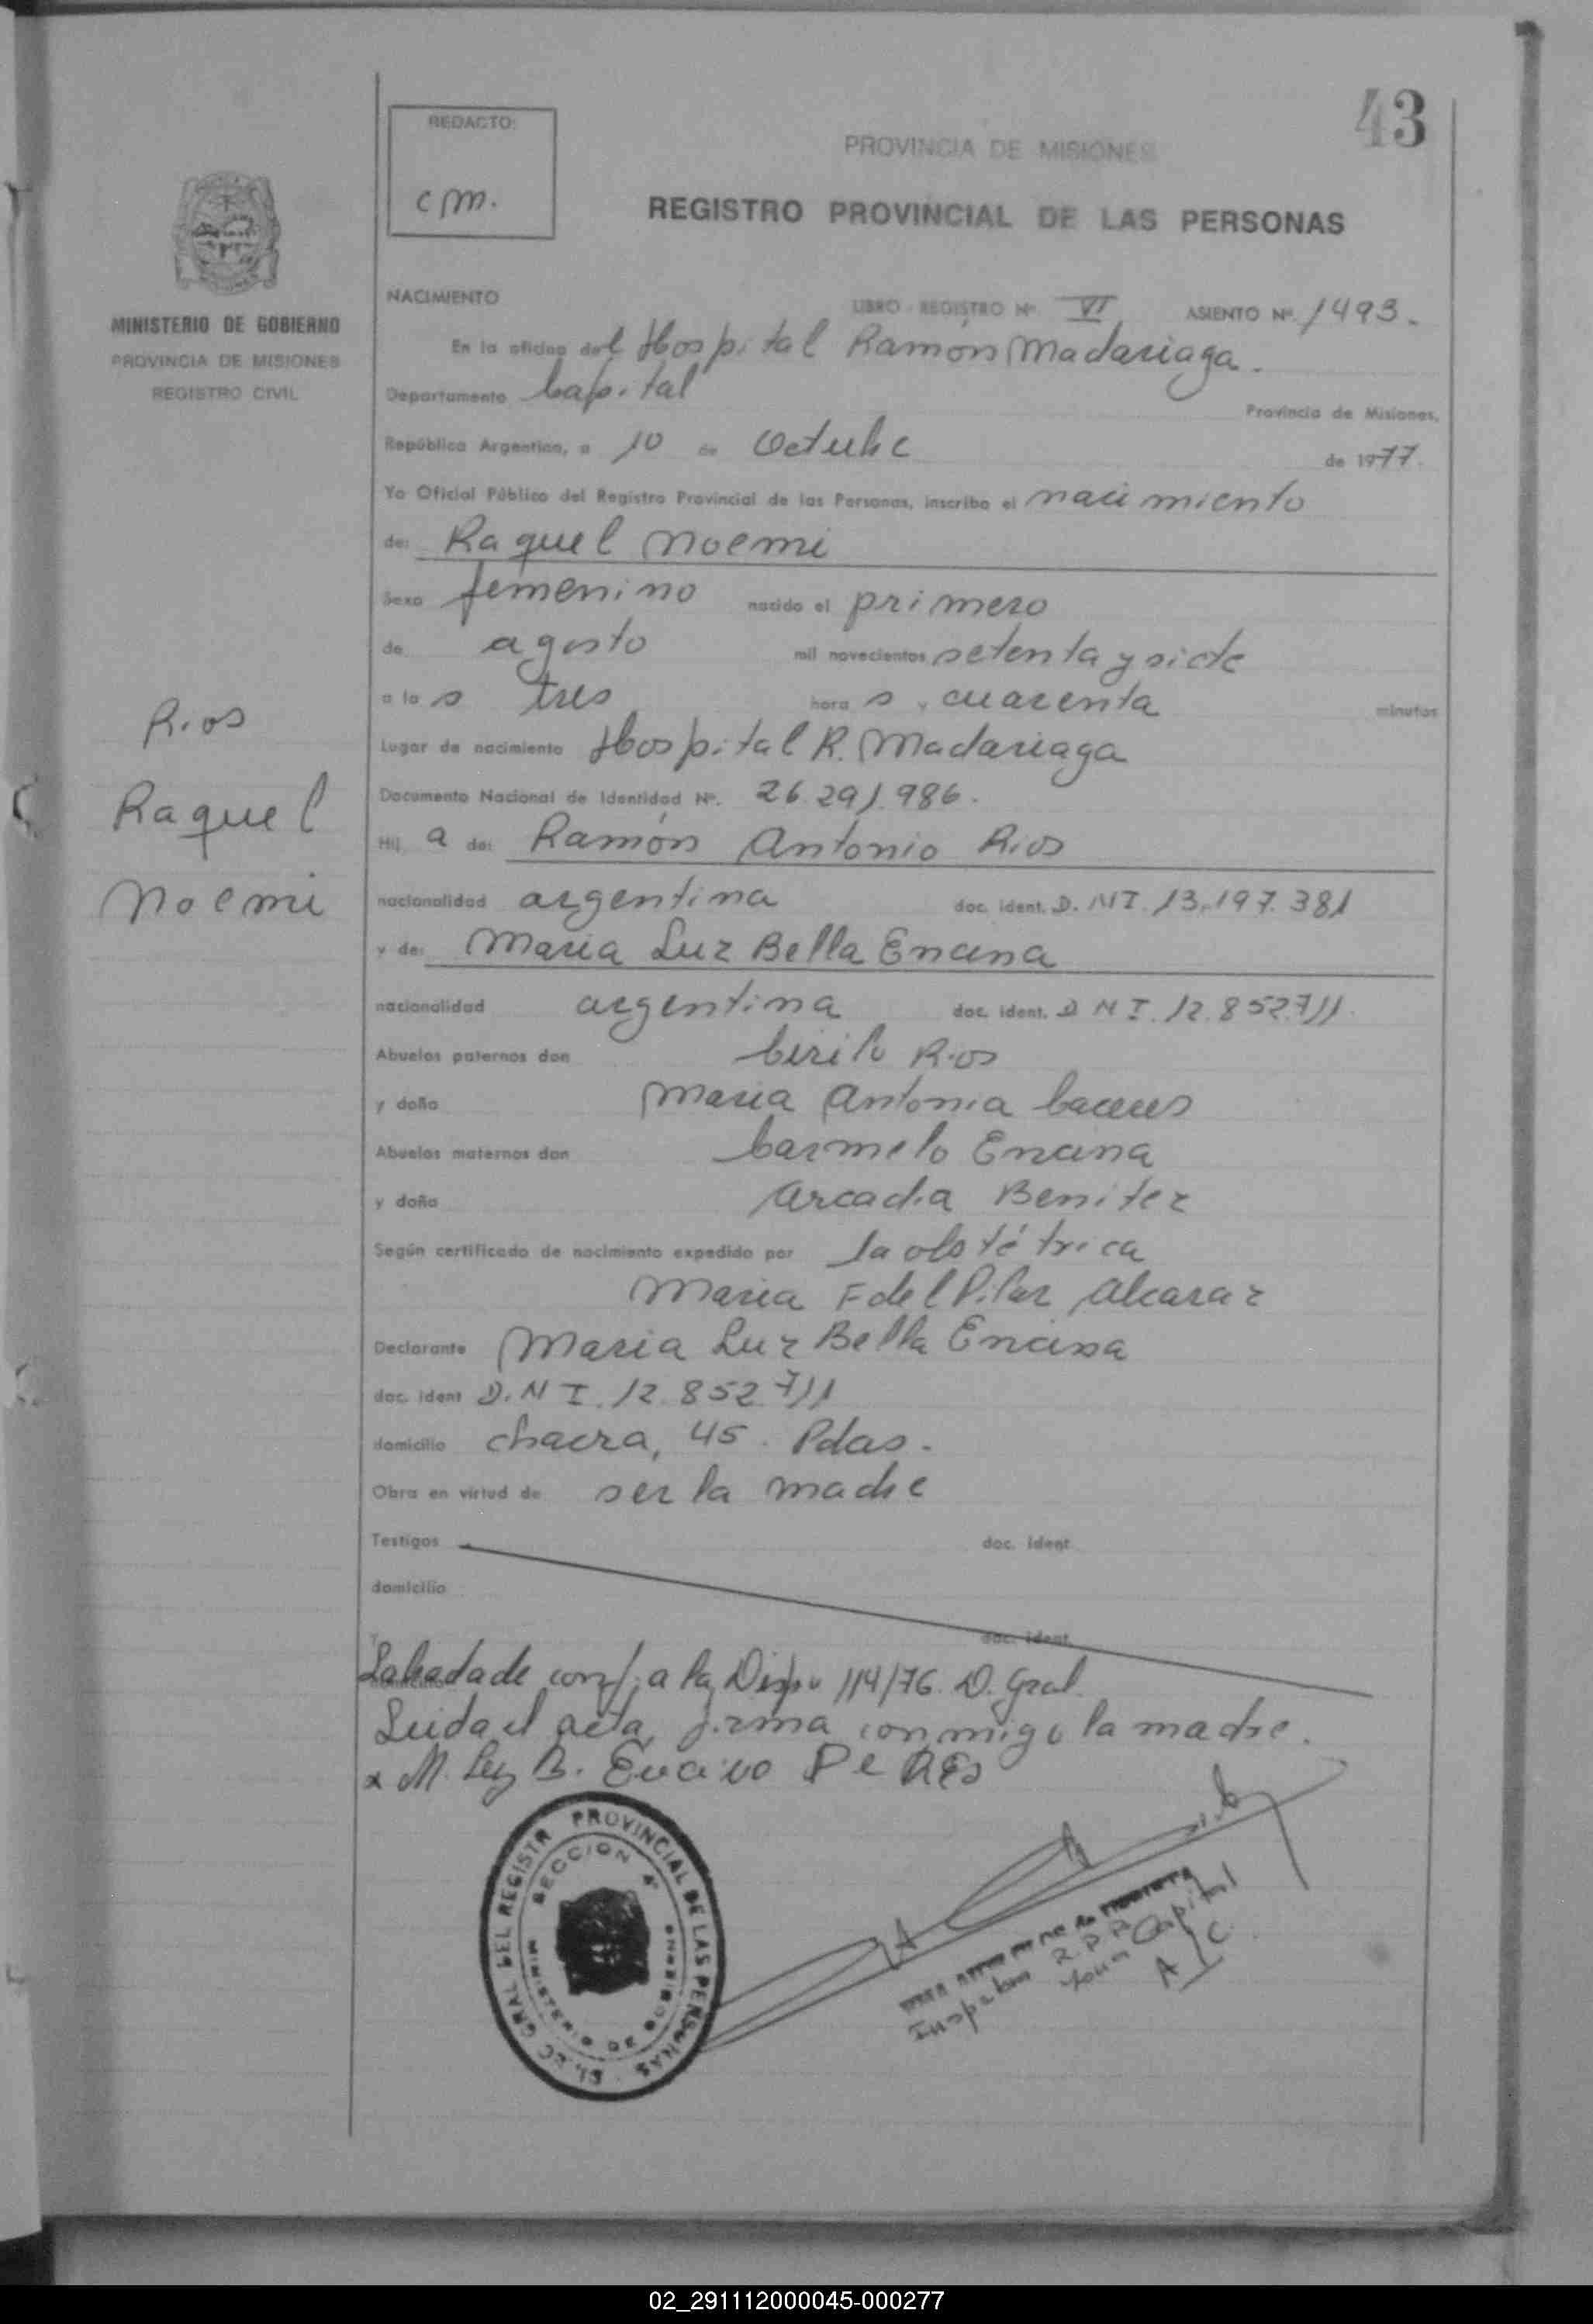 43
REDACTO:
cm.
PROVINCIA DE MISIONES
REGISTRO PROVINCIAL DE LAS PERSONAS
MINISTERIO DE GOBIERNO
PROVINCIA DE MISIONES
REGISTRO CIVIL
NACIMIENTO
LIBRO - REGISTRO Nº VI ASIENTO Nº. 1493.
En la oficina del Hospital Ramón Madariaga.
Departamento Capital Provincia de Misiones,
República Argentina, a 10 de Octubre de 1977.
Yo Oficial Público del Registro Provincial de las Personas, inscribo el nacimiento
de: Raquel Noemi
Sexo femenino nacido el primero
de agosto mil novecientos setenta y siete
a las tres horas y cuarenta minutos
Lugar de nacimiento Hospital R. Madariaga
Documento Nacional de Identidad Nº. 26.291.986.
Hija de: Ramón Antonio Rios
nacionalidad argentina doc. ident. D.NI. 13.197.381
y de: Maria Luz Bella Encina
nacionalidad argentina doc. ident. D N I. 12.852.711
Abuelos paternos don Cirilo Rios
y doña Maria Antonia Caceres
Abuelos maternos don Carmelo Encina
y doña Arcadia Benitez
Según certificado de nacimiento expedido por la obstétrica
Maria F del Pilar Alcaraz
Declarante Maria Luz Bella Encina
doc. ident D.N I. 12.852.711
domicilio chacra, 45. Pdas.
Obra en virtud de ser la madre
Testigos doc. ident.
domicilio
doc. ident.
Labrada de conf. a la Dispo 114/76. D. Gral.
Leida el acta, firma conmigo la madre.
x M. Luz B. Encina De Rios
Rios
Raquel
Noemi
DIREC GRAL DEL REGISTR PROVINCIAL DE LAS PERSONAS
SECCION 4ª
MINISTERIO DE GOBIERNO
R.P.P.
Capital
A/C
02_291112000045-000277